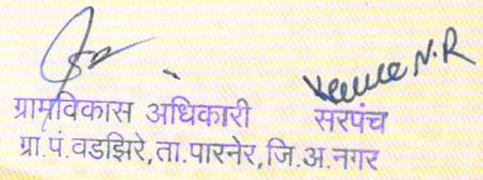 ग्रामविकास अधिकारी सरपंच
ग्रा.पं.वडझिरे,ता.पारनेर,जि.अ.नगर